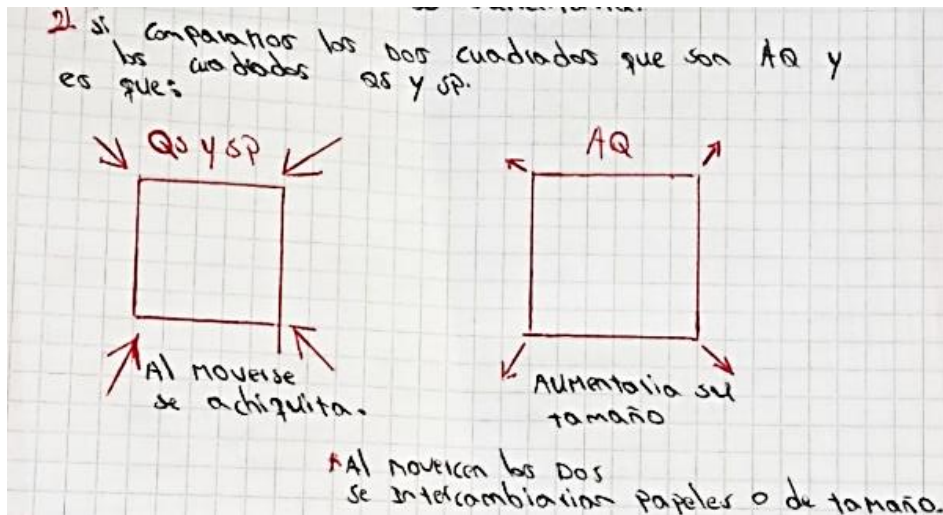 2) si comparamos los Dos cuadrados que son AQ y
los cuadrados QS y SP.
es que:
QS y SP
AQ
Al moverse
se achiquita.
AUMENtaria su
tamaño
*Al movercen los Dos
se Intercambiarian papeles o de tamaño.